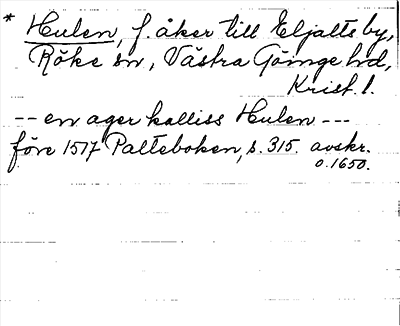 * Hulen, f. åker till Eljalte by,
Röke sn, Västra Göinge hd,
Krist. l.
-- en ager kalliss Hulen ---
före 1517 Palteboken, s. 315. avskr.
o. 1650.